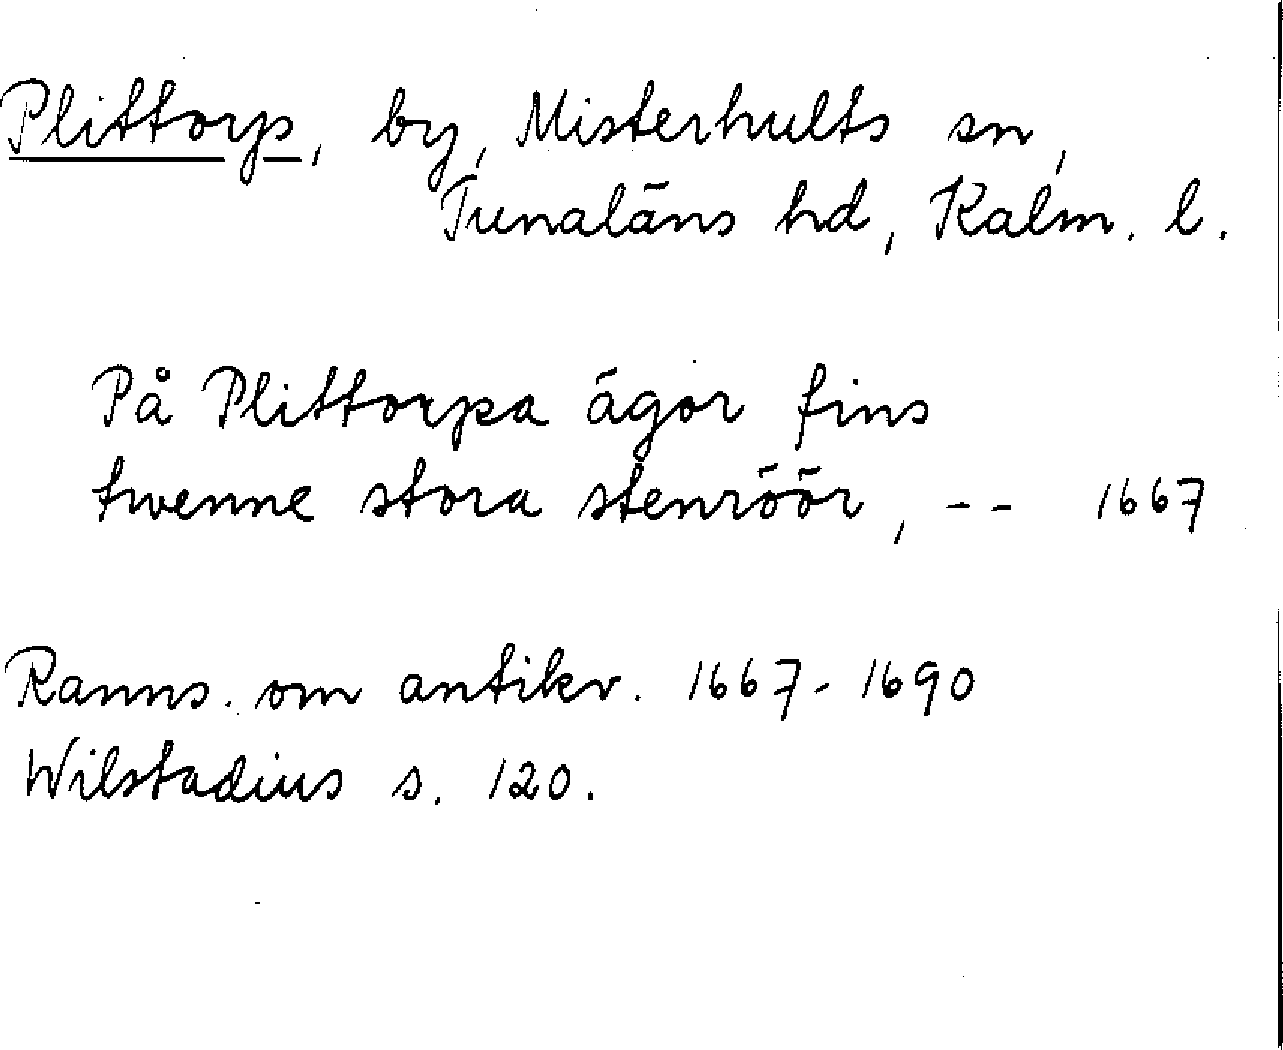 Plittorp, by, Misterhults sn,
Tunaläns hd, Kalm. l.
På Plittorpa ägor fins
twenne stora stenröör, -- 1667
Ranns. om antikv. 1667-1690
Wilstadius s. 120.